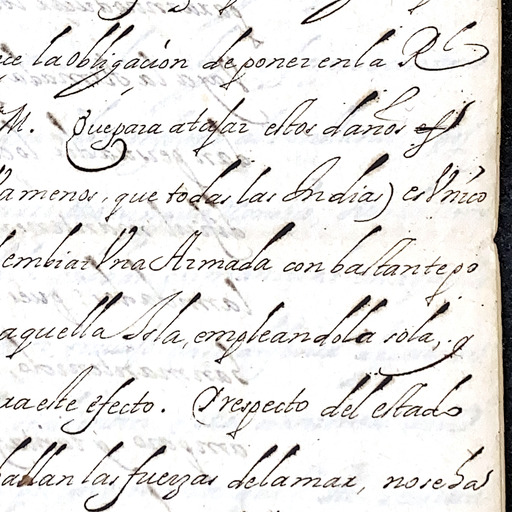 ue la obligaçión de poner en la Rl
M. Que para atajar estos daños es
Va menos, que todas las Indias) es Vnico
embiar Vna Armada con bastante po
aquella Isla, empleandola sola, y
ra este efecto. Y respecto del estado
hallan las fuerzas de la mar, no se ha